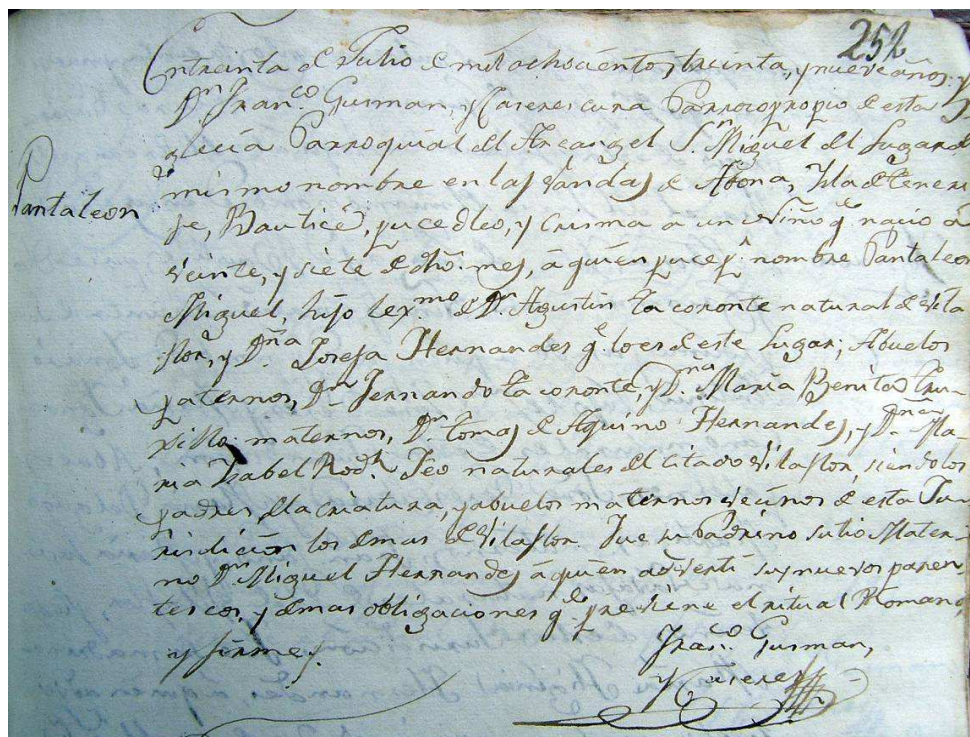 252
En treinta de Julio de mil ochocientos, treinta, y nueve años. y
Dn. Franco. Gusman, y Caseres cura Parroco propio de esta
glecia Parroquial del Arcangel Sn. Miguel del Lugar del
Pantaleon
mismo nombre en las Vandas de Abona, Ysla de Tenere-
fe, Bauticé, puce oleo, y Crisma a un Niño qe. nacio a
veinte, y siete de dho. mes, á quien puce pr. nombre Pantaleon
Miguel, hijo lexmo. de Dn. Agustin Tacoronte natural de Vila
flor, y Dña. Josefa Hernandes qe. lo es de este Lugar; Abuelos
paternos, Dn. Fernando Tacoronte, y Dña. María Benita Tru-
xillo: maternos, Dn. Tomas de Aquino Hernandes, y Dña. Ma-
ria Ysabel Rodz. Feo naturales del citado Vilaflor, siendo los
padres de la criatura, y abuelos maternos vecinos de esta Ju-
risdicion los demas de Vilaflor. Fue su Padrino su tio Mater-
no Dn. Miguel Hernandes á quien advertí su nuevo paren-
tesco, y demas obligaciones qe. previene el ritual Romano,
y firme.
Franco. Gusman,
y Caseres